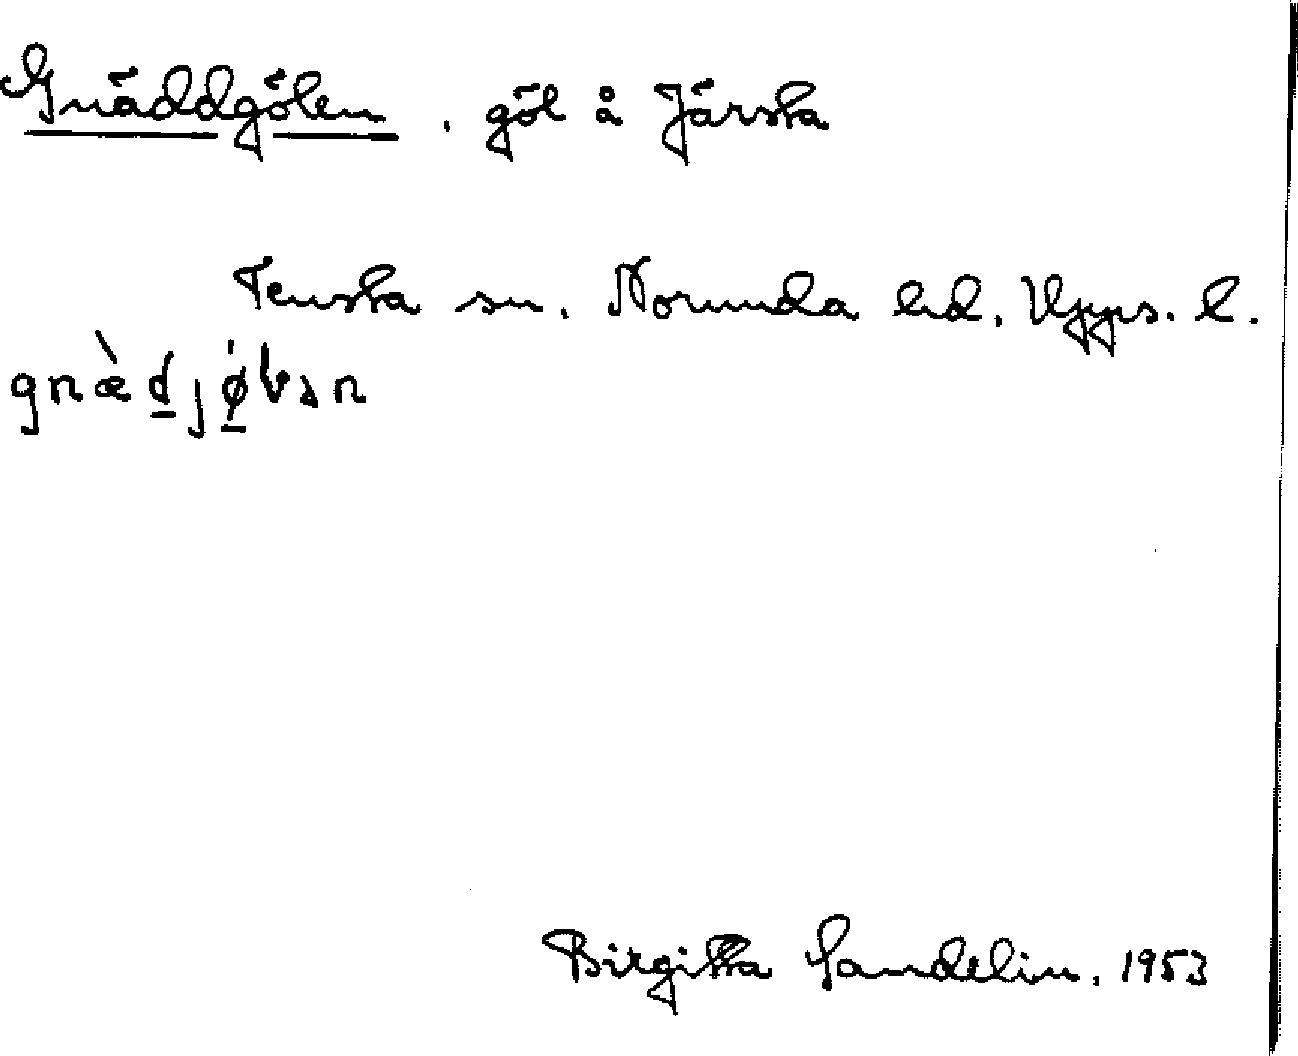 Gnäddgölen, göl å Järsta
Tensta sn. Norunda hd. Upps. l.
Birgitta Sandelin. 1953